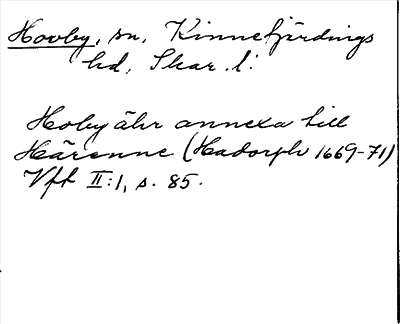 Hovby, sn, Kinnefjärdings
hd, Skar. l:
Hoby ähr annexa till
Härenne (Hadorph 1669-71)
Vft II:1, s. 85.